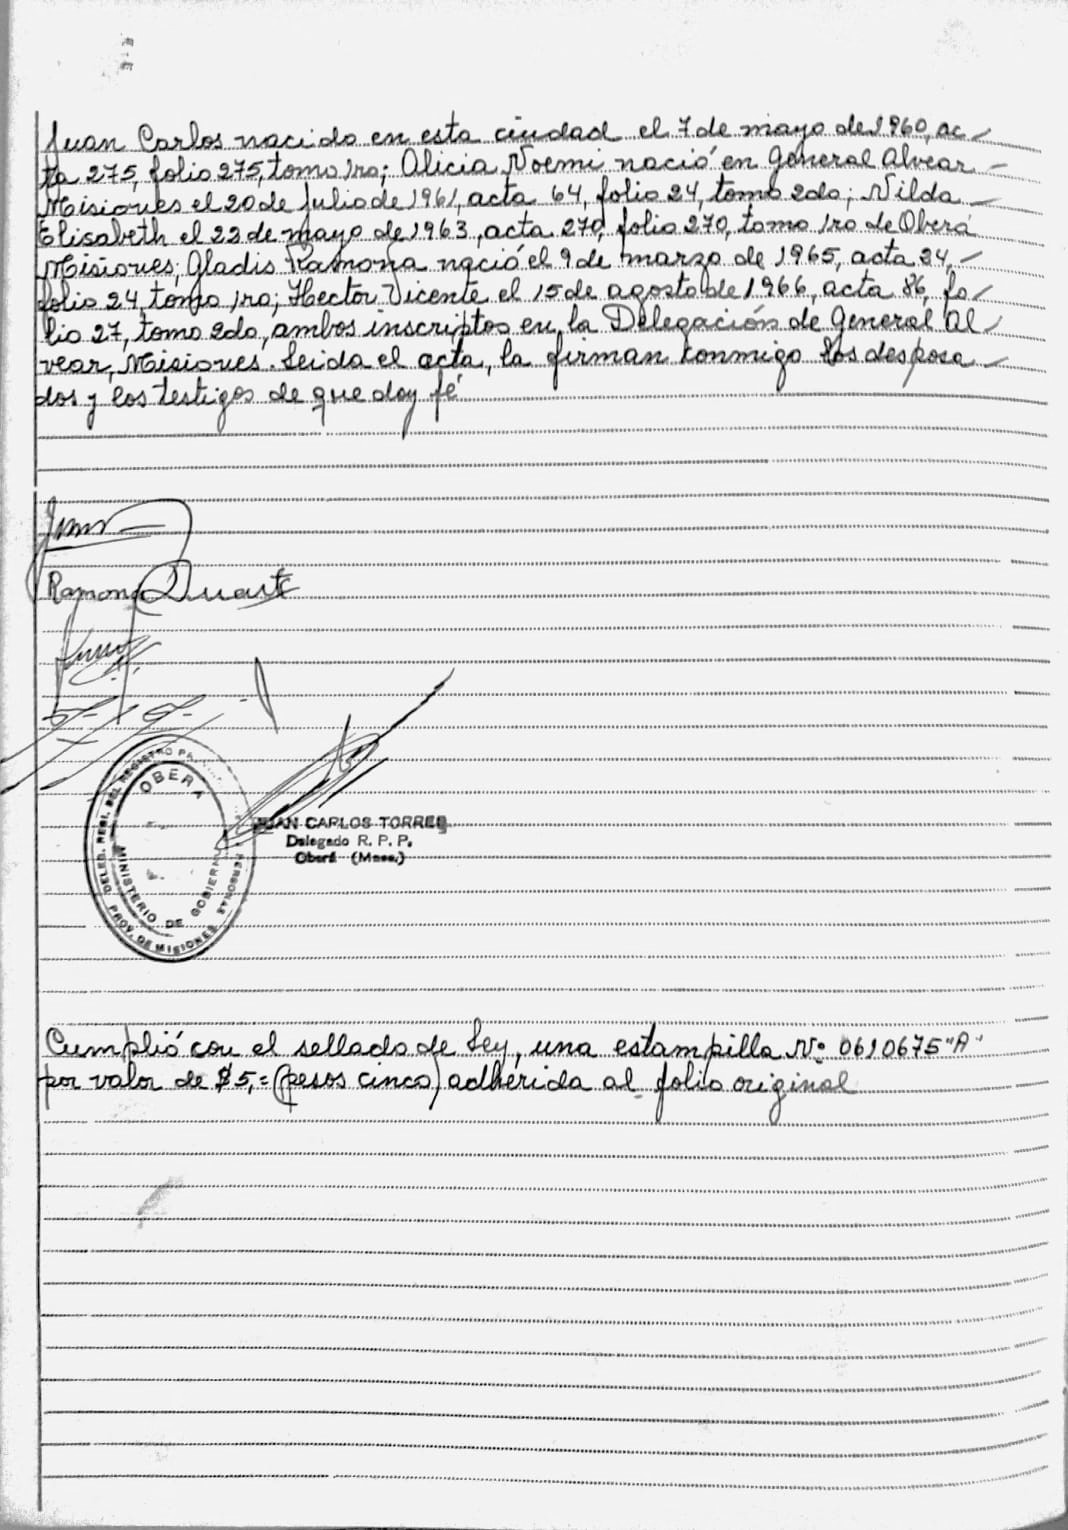 Juan Carlos nacido en esta ciudad el 7 de mayo de 1960, ac
ta 275, folio 275, tomo 1ro; Alicia Noemi nació en General Alvear
Misiones el 20 de Julio de 1961, acta 64, folio 24, tomo 2do; Nilda
Elisabeth el 22 de mayo de 1963, acta 270, folio 270, tomo 1ro de Oberá
Misiones; Gladis Ramona nació el 9 de marzo de 1965, acta 24,
folio 24, tomo 1ro; Hector Vicente el 15 de agosto de 1966, acta 86, fo
lio 27, tomo 2do, ambos inscriptos en la Delegación de General Al
vear, Misiones. Leida el acta, la firman conmigo los desposa
dos y los testigos de que doy fé
Ramona Duarte
DELEG. REGL. DEL REGISTRO
PERSONAS
OBERA
MINISTERIO DE GOBIERNO
PROV. DE MISIONES
JUAN CARLOS TORRES
Delegado R. P. P.
Oberá (Mnes.)
Cumplió con el sellado de Ley, una estampilla Nº 0610675 "A"
por valor de $5,= (pesos cinco) adherida al folio original